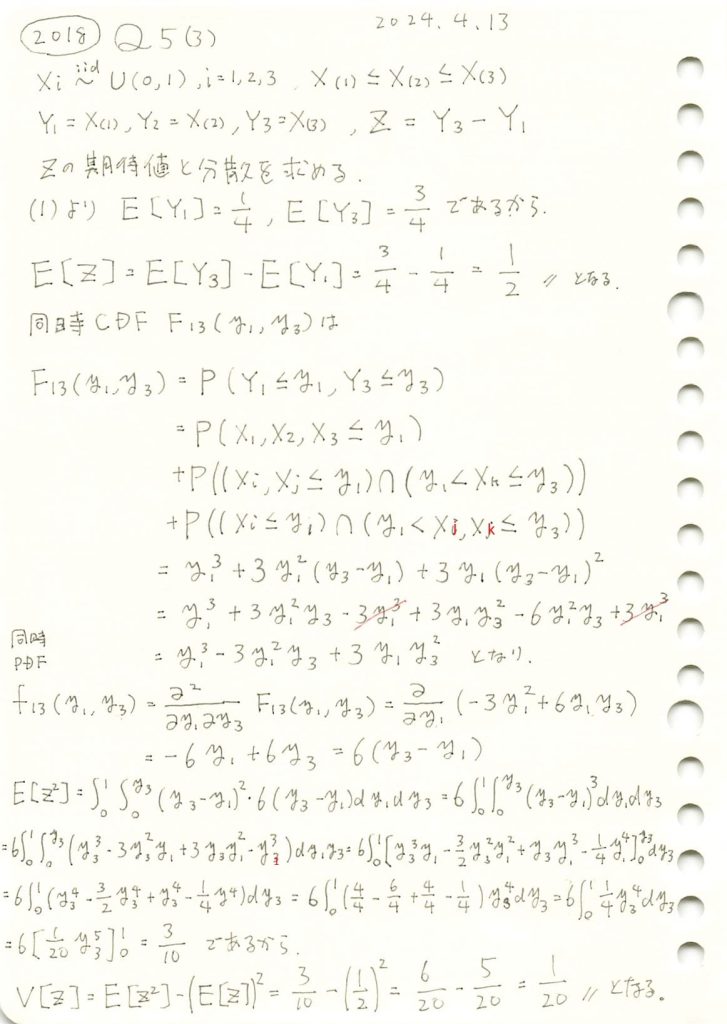 2024.4.13
2018 Q5(3)
Xi iid~ U(0,1), i=1,2,3 X(1) ≤ X(2) ≤ X(3)
Y₁ = X(1), Y₂ = X(2), Y₃ = X(3) , Z = Y₃ − Y₁
Zの期待値と分散を求める.
(1)より E[Y₁] = 1/4 , E[Y₃] = 3/4 であるから.
E[Z] = E[Y₃] − E[Y₁] = 3/4 − 1/4 = 1/2 〃 となる.
同時CDF F₁₃(y₁, y₃)は
F₁₃(y₁, y₃) = P(Y₁ ≤ y₁, Y₃ ≤ y₃)
= P(X₁, X₂, X₃ ≤ y₁)
+P((Xi, Xj ≤ y₁)∩(y₁ < Xk ≤ y₃))
+P((Xi ≤ y₁)∩(y₁ < Xj, Xk ≤ y₃))
= y₁³ + 3y₁²(y₃−y₁) + 3y₁(y₃−y₁)²
= y₁³ + 3y₁²y₃ − 3y₁³ + 3y₁y₃² − 6y₁²y₃ + 3y₁³
= y₁³ − 3y₁²y₃ + 3y₁y₃² となり.
同時
PDF
f₁₃(y₁, y₃) = ∂²/∂y₁∂y₃ F₁₃(y₁, y₃) = ∂/∂y₁ (−3y₁² + 6y₁y₃)
= −6y₁ + 6y₃ = 6(y₃ − y₁)
E[Z²] = ∫₀¹∫₀^y₃ (y₃−y₁)²・6(y₃−y₁)dy₁dy₃ = 6∫₀¹∫₀^y₃ (y₃−y₁)³dy₁dy₃
=6∫₀¹∫₀^y₃ (y₃³ − 3y₃²y₁ + 3y₃y₁² − y₁³)dy₁y₃ = 6∫₀¹[y₃³y₁ − 3/2 y₃²y₁² + y₃y₁³ − 1/4 y₁⁴]₀^y₃ dy₃
=6∫₀¹(y₃⁴ − 3/2 y₃⁴ + y₃⁴ − 1/4 y⁴)dy₃ = 6∫₀¹(4/4 − 6/4 + 4/4 − 1/4)y₃⁴dy₃ = 6∫₀¹ 1/4 y₃⁴dy₃
=6[1/20 y₃⁵]₀¹ = 3/10 であるから.
V[Z] = E[Z²] − (E[Z])² = 3/10 − (1/2)² = 6/20 − 5/20 = 1/20 〃 となる。